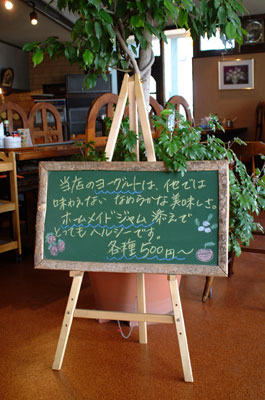 当店のヨーグルトは、他では
味わえない なめらかな美味しさ。
ホームメイドジャム 添えで
とってもヘルシーです。
各種 500円〜